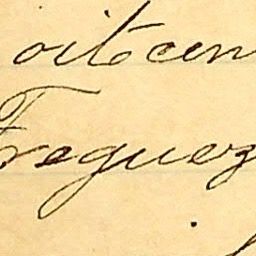 oitocen
Freguez